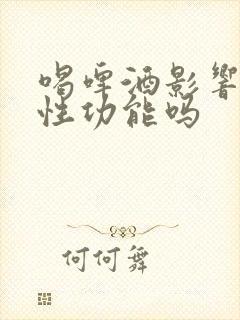 喝啤酒影响
性功能吗
何何舞